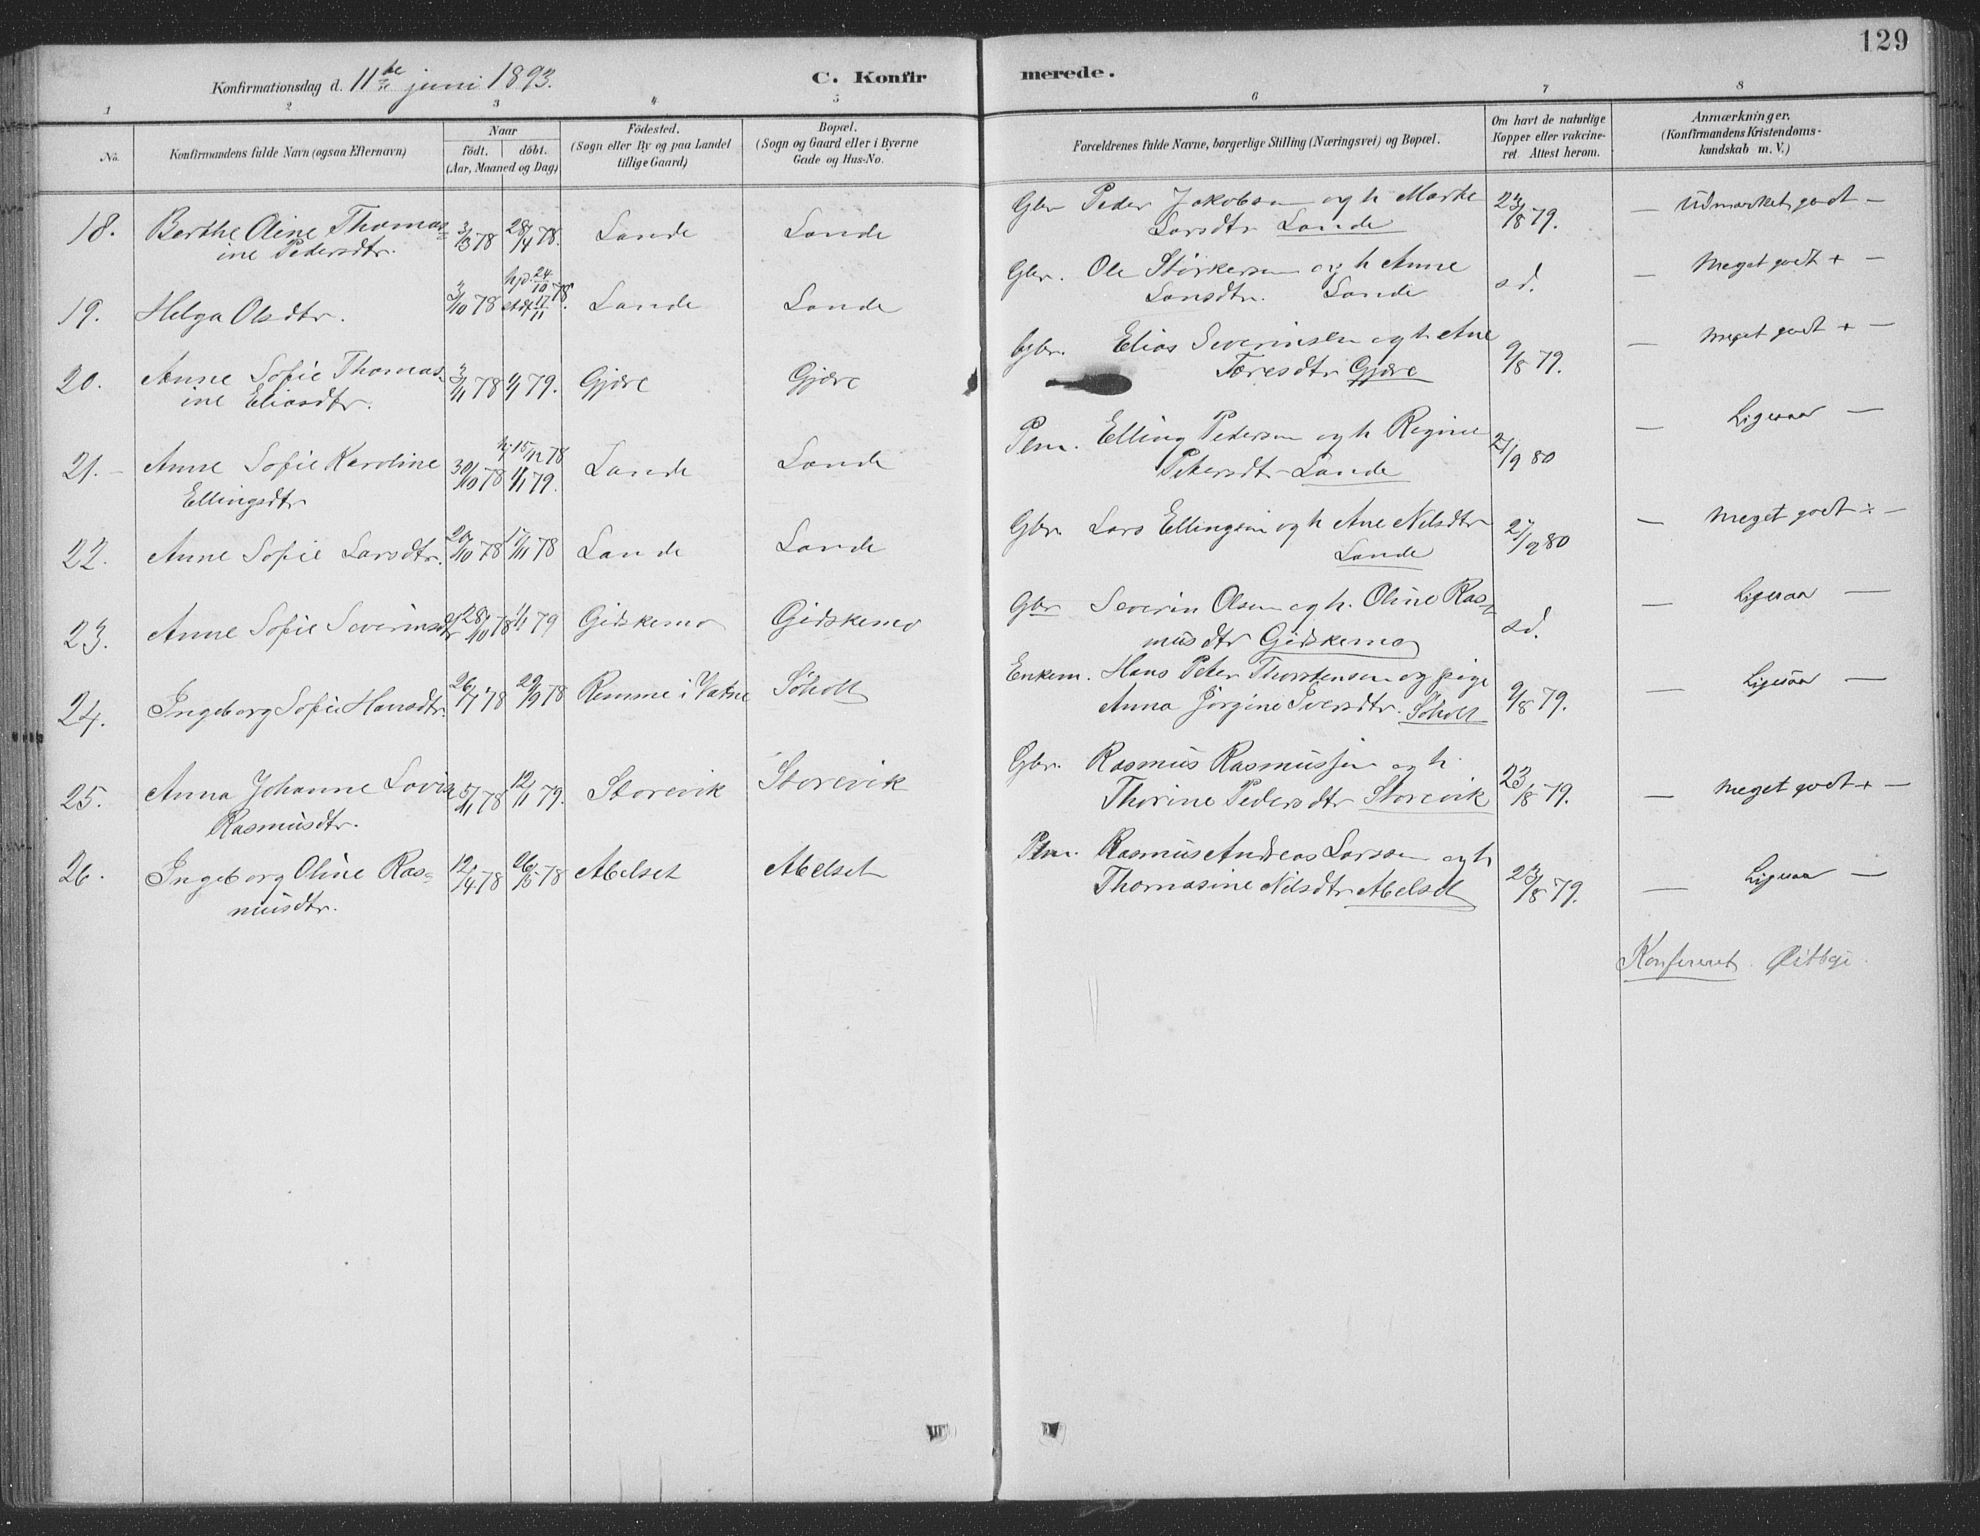 129
Konfirmationsdag d. 11te juni 1893.
C. Konfirmerede.
1 2 3 4 5 6 7 8
No.
Konfirmandens fulde Navn (ogsaa Efternavn)
Naar
födt. döbt.
(Aar, Maaned og Dag)
Födested.
(Sogn eller By og paa Landet
tillige Gaard)
Bopæl.
(Sogn og Gaard eller i Byerne
Gade og Hus-No.
Forældrenes fulde Navne, borgerlige Stilling (Næringsvei) og Bopæl.
Om havt de naturlige
Kopper eller vakcine-
ret Attest herom.
Anmærkninger.
(Konfirmandens Kristendoms-
kundskab m. V.)
18. Berthe Oline Thomas= 3/3 78 28/4 78. Lande Lande Gbr Peder Jakobsen og h Marthe 23/8 79. — Udmærket godt —
ine Pedersdtr. Larsdtr Lande
19. Helga Olsdtr. 3/10 78 hjd. 24/10 78. stdf 17/11 Lande Lande Gbr. Ole Størkersen og h Anne sd. — Meget godt + —
Larsdtr. Lande
20. Anne Sofie Thomas- 3/11 78 1/1 79. Gjøre Gjøre Gbr. Elias Severinsen og h Ane 9/8 79. — Meget godt + —
ine Eliasdtr. Toresdtr Gjøre
21. — Anne Sofie Karoline 30/10 78 15/12 78 1/1 79. Lande Lande Plm. Elling Pedersen og h Regine 27/9 80 — Ligesaa —
Ellingsdtr Petersdtr Lande
22. Anne Sofie Larsdtr. 20/10 78 17/11 78 Lande Lande Gbr. Lars Ellingsen og h Ane Nilsdtr 27/9 80 — Meget godt + —
Lande
23. Anne Sofie Severinsdtr 28/10 78 1/1 79 Gidskemo Gidskemo Gbr Severin Olsen og h. Oline Ras= sd. — Ligesaa —
musdtr Gidskemo
24. Ingeborg Sofie Hansdtr. 26/7 78 29/9 78 Remme i Vatne Søholt Enkem. Hans Peter Thorstensen og pige 9/8 79. — Ligesaa —
Anna Jørgine Iversdtr. Søholt
25. Anna Johanne Lovise 5/11 78 12/1 79. Storevik Storevik Gbr. Rasmus Rasmussen og h. 23/8 79. — Meget godt + —
Rasmusdtr. Thorine Pedersdtr Storevik
26. Ingeborg Oline Ras= 12/4 78 26/5 78 Abelset Abelset Plm. Rasmus Andreas Larsen og h 23/8 79. — Ligesaa —
musdtr. Thomasine Nilsdtr Abelset
Konfereret.